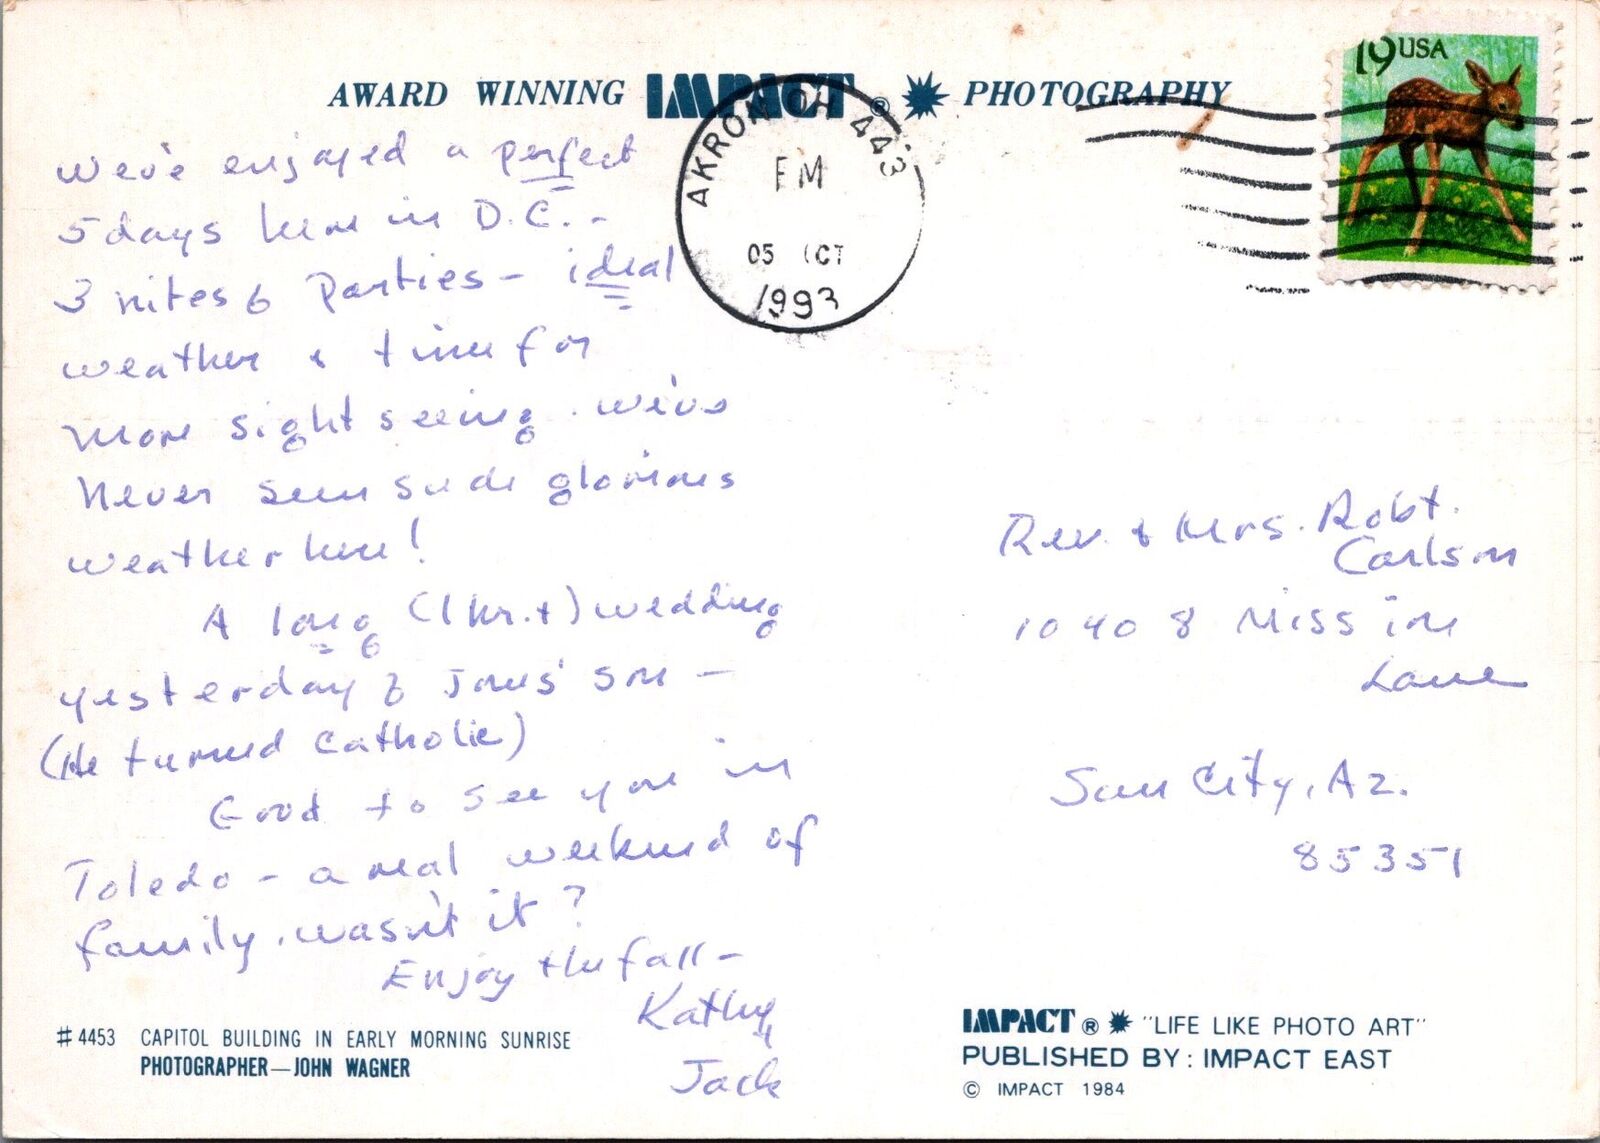 AWARD WINNING IMPACT ® PHOTOGRAPHY
19 USA
AKRON OH 443
PM
05 OCT
1993
We've enjoyed a perfect
5 days here in D.C. -
3 nites of Parties - ideal
weather & time for
more sight seeing. We've
never seen such glorious
weather here!
A long (1 hr. +) wedding
yesterday of Jones' son -
(He turned Catholic)
Good to see you in
Toledo - a real weekend of
family, wasn't it?
Enjoy the fall -
Kathy
Jack
Rev. & Mrs. Robt.
Carlson
10408 Mission
Lane
Sun City, Az.
85351
#4453 CAPITOL BUILDING IN EARLY MORNING SUNRISE
PHOTOGRAPHER—JOHN WAGNER
IMPACT ® "LIFE LIKE PHOTO ART"
PUBLISHED BY: IMPACT EAST
© IMPACT 1984